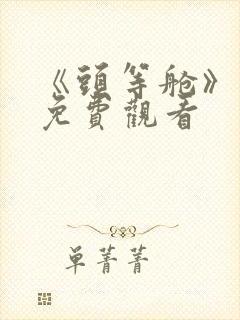 《頭等舱》
免費觀看
单菁菁